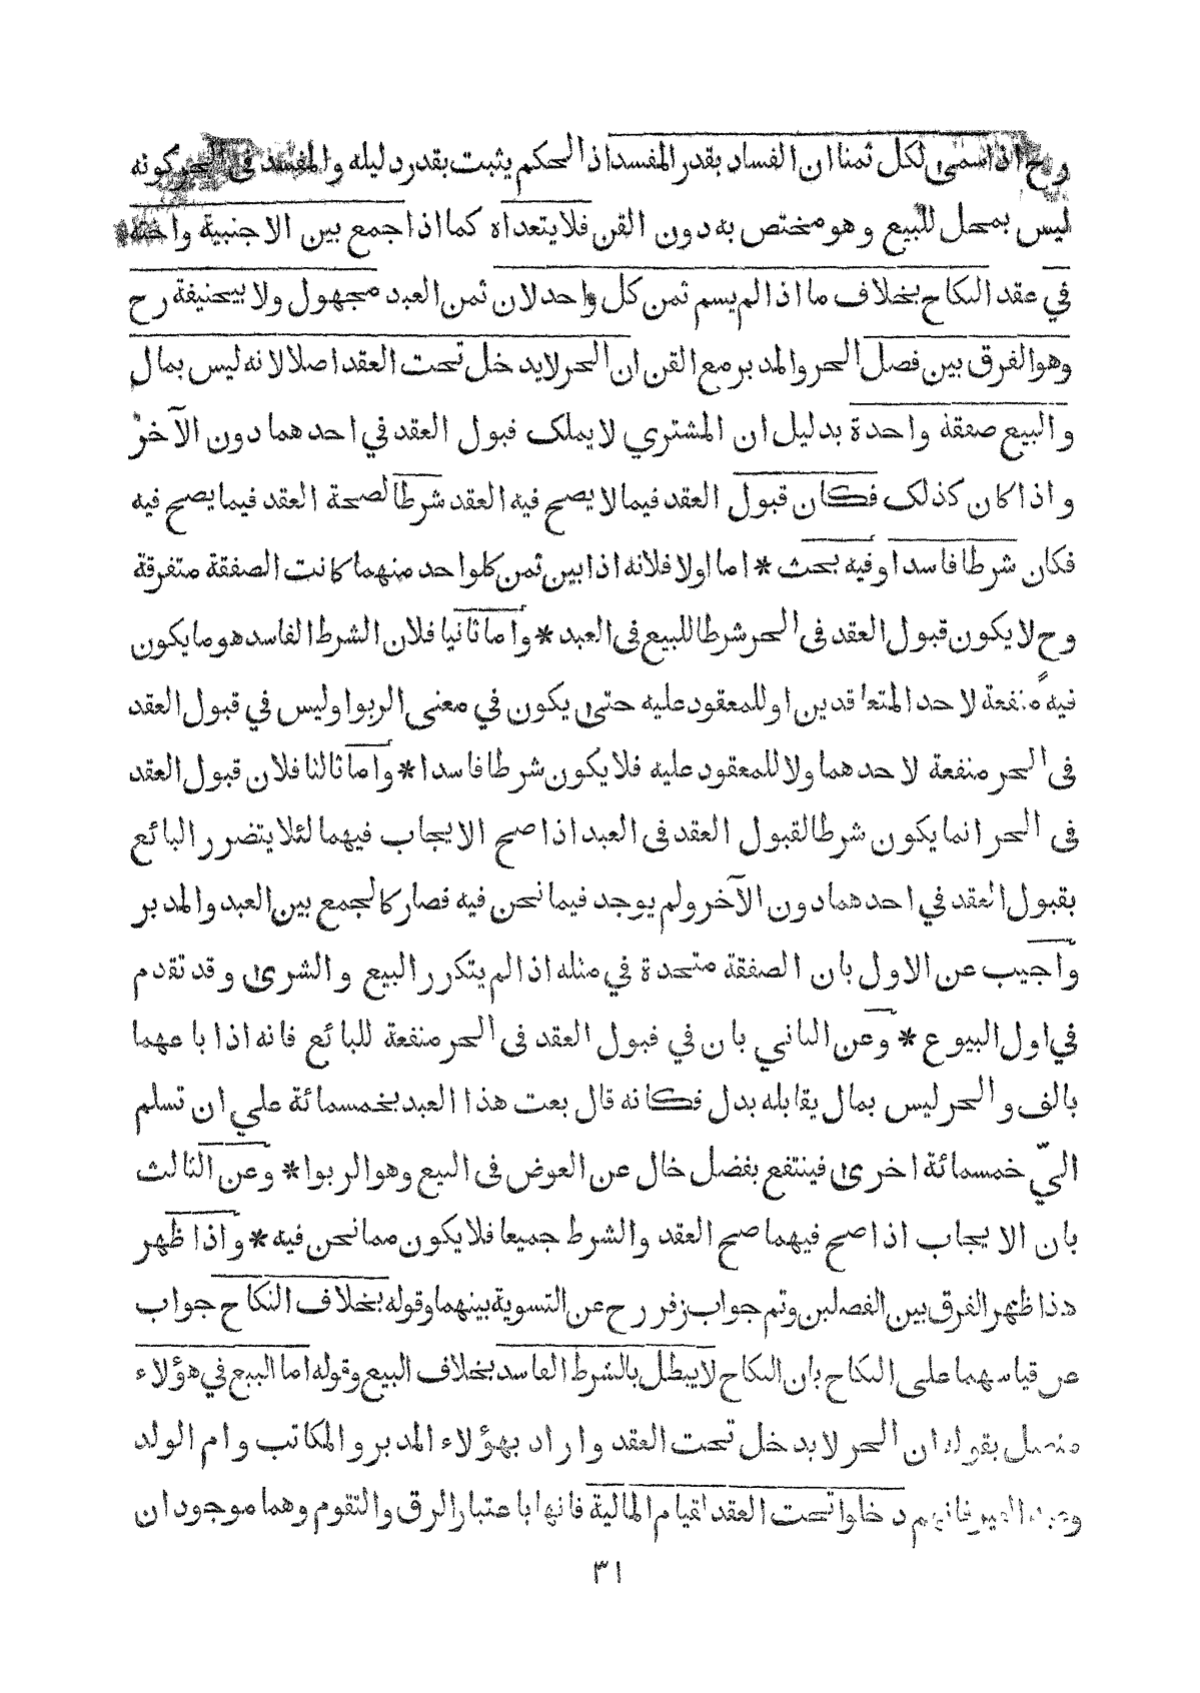 وح اذا سمى لكل ثمنا ان الفساد بقدر المفسد اذ الحكم يثبت بقدر دليله والمفسد في الحر كونه
ليس بمحل للبيع وهو مختص به دون القن فلا يتعداه كما اذا جمع بين الاجنبية واخته
في عقد النكاح بخلاف ما اذا لم يسم ثمن كل واحد لان ثمن العبد مجهول ولابيحنيفة رح
وهو الفرق بين فصل الحر والمدبر مع القن ان الحر لا يدخل تحت العقد اصلا لانه ليس بمال
والبيع صفقة واحدة بدليل ان المشتري لا يملك قبول العقد في احدهما دون الآخر
واذا كان كذلك فكان قبول العقد فيما لا يصح فيه العقد شرطا لصحة العقد فيما يصح فيه
فكان شرطا فاسدا وفيه بحث * اما اولا فلانه اذا بين ثمن كلواحد منهما كانت الصفقة متفرقة
وح لا يكون قبول العقد فى الحر شرطا للبيع فى العبد * واما ثانيا فلان الشرط الفاسد هو ما يكون
فيه منفعة لاحد المتعاقدين او للمعقود عليه حتى يكون في معنى الربوا وليس في قبول العقد
فى الحر منفعة لاحدهما ولا للمعقود عليه فلا يكون شرطا فاسدا * واما ثالثا فلان قبول العقد
فى الحر انما يكون شرطا لقبول العقد فى العبد اذا صح الايجاب فيهما لئلا يتضرر البائع
بقبول العقد في احدهما دون الآخر ولم يوجد فيما نحن فيه فصار كالجمع بين العبد والمدبر
واجيب عن الاول بان الصفقة متحدة في مثله اذا لم يتكرر البيع والشرى وقد تقدم
في اول البيوع * وعن الثاني بان في قبول العقد فى الحر منفعة للبائع فانه اذا باعهما
بالف والحر ليس بمال يقابله بدل فكانه قال بعت هذا العبد بخمسمائة علي ان تسلم
اليّ خمسمائة اخرى فينتفع بفضل خال عن العوض فى البيع وهو الربوا * وعن الثالث
بان الايجاب اذا صح فيهما صح العقد والشرط جميعا فلا يكون مما نحن فيه * واذا ظهر
هذا ظهر الفرق بين الفصلين وتم جواب زفر رح عن التسوية بينهما وقوله بخلاف النكاح جواب
عن قياسهما على النكاح بان النكاح لا يبطل بالشرط الفاسد بخلاف البيع وقوله اما البيع في هؤلاء
متصل بقوله ان الحر لا يدخل تحت العقد واراد بهؤلاء المدبر والمكاتب وام الولد
وعبد الغير فانهم دخلوا تحت العقد لقيام المالية فانها باعتبار الرق والتقوم وهما موجودان
٣١